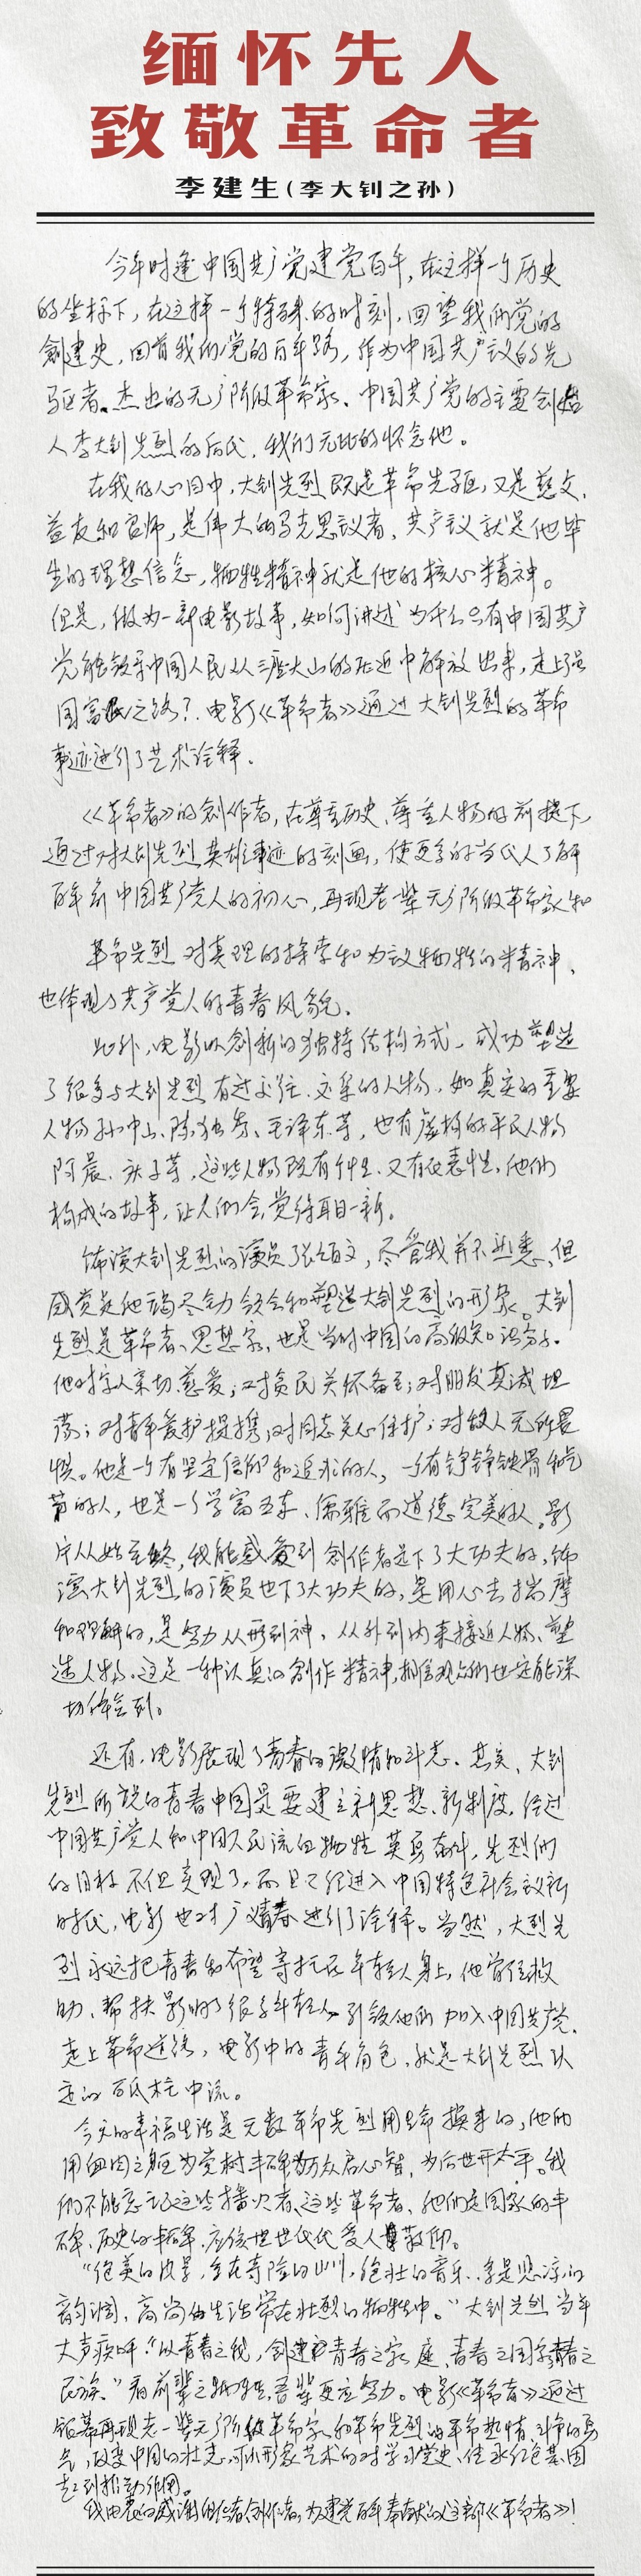 缅怀先人
致敬革命者
李建生(李大钊之孙)
今年时逢中国共产党建党百年,在这样一个历史
的坐标下,在这样一个特殊的时刻,回望我们党的
创建史,回首我们党的百年路,作为中国共产主义的先
驱者、杰出的无产阶级革命家、中国共产党的主要创始
人李大钊先烈的后代,我们无比的怀念他。
在我的心目中,大钊先烈既是革命先驱,又是慈父、
益友和良师,是伟大的马克思主义者,共产主义就是他毕
生的理想信念,牺牲精神就是他的核心精神。
但是,做为一部电影故事,如何讲述为什么只有中国共产
党能领导中国人民从三座大山的压迫中解放出来,走上强
国富民之路?电影《革命者》通过大钊先烈的革命
事迹进行了艺术诠释。
《革命者》的创作者,在尊重历史、尊重人物的前提下,
通过对大钊先烈英雄事迹的刻画,使更多的当代人了解
百年前中国共产党人的初心,再现老一辈无产阶级革命家和
革命先烈对真理的探索和为主义牺牲的精神,
也体现了共产党人的青春风貌。
此外,电影以创新的独特结构方式,成功塑造
了很多与大钊先烈有过交往、交集的人物,如真实的重要
人物孙中山、陈独秀、毛泽东等,也有虚构的平民人物
阿晨、庆子等,这些人物既有个性,又有代表性,他们
构成的故事,让人们会觉得耳目一新。
饰演大钊先烈的演员张颂文,尽管我并不熟悉,但
感觉是他竭尽全力领会和塑造大钊先烈的形象。大钊
先烈是革命者、思想家,也是当时中国的高级知识分子。
他对家人亲切慈爱;对贫民关怀备至;对朋友真诚坦
荡;对青年爱护提携;对同志关心保护;对敌人无所畏
惧。他是一个有坚定信仰和追求的人,一个有铮铮铁骨和气
节的人,也是一个学富五车、儒雅而道德完美的人。影
片从始至终,我能感受到创作者是下了大功夫的,饰
演大钊先烈的演员也下了大功夫的,是用心去揣摩
和理解的,是努力从形到神,从外到内来接近人物、塑
造人物。这是一种认真的创作精神,相信观众们也一定能深
切体会到。
还有,电影展现了青春的激情和斗志。其实,大钊
先烈所说的青春中国是要建立新思想、新制度,经过
中国共产党人和中国人民流血牺牲英勇奋斗,先烈们
的目标不但实现了,而且已经进入中国特色社会主义新
时代,电影也对广义青春进行了诠释。当然,大烈先
烈永远把青春和希望寄托在年轻人身上,他曾经救
助、帮扶、影响了很多年轻人,引领他们加入中国共产党,
走上革命道路,电影中的青年角色,就是大钊先烈认
定的砥柱中流。
今天的幸福生活是无数革命先烈用生命换来的,他们
用血肉之躯为党树丰碑,为万众启心智,为后世开太平。我
们不能忘记这些播火者、这些革命者,他们是国家的丰
碑、历史的丰碑,应该世世代代受人敬仰。
“绝美的风景,多在奇险的山川,绝壮的音乐,多是悲凉的
韵调,高尚的生活常在壮烈的牺牲中。”大钊先烈当年
大声疾呼:“以青春之我,创建青春之家庭,青春之国家,青春之
民族。”有前辈之牺牲,吾辈更应努力。电影《革命者》通过
银幕再现老一辈无产阶级革命家和革命先烈的革命热情、斗争的勇
气,改变中国的壮志,可以形象艺术的对学习党史、传承红色基因
起到推动作用。
我由衷的感谢创作者,为建党百年奉献的这部《革命者》!